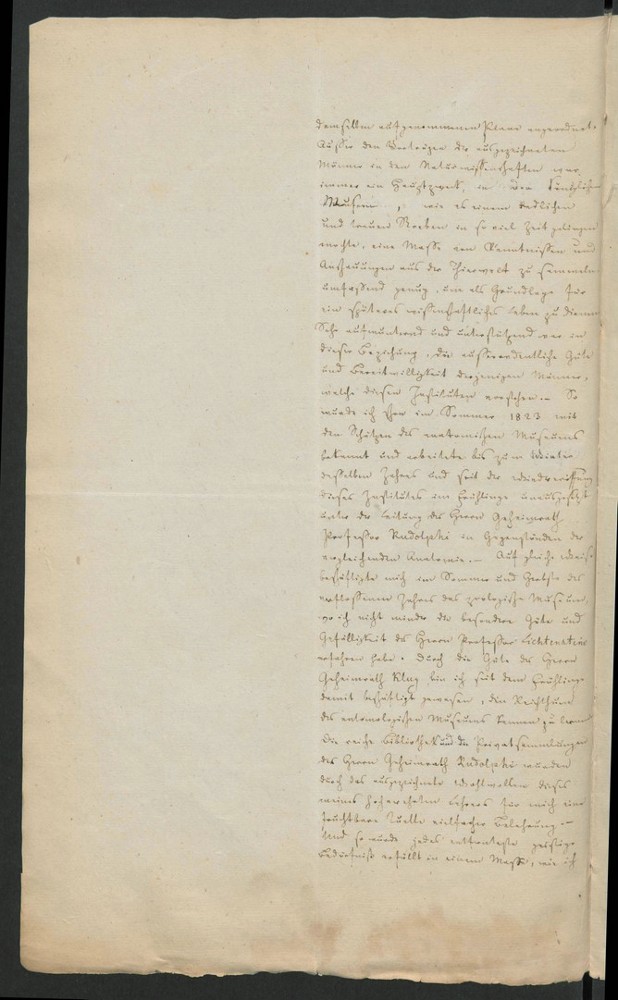 demselben aufgenommenen Plane angeordnet.
Außer den Vorträgen der ausgezeichneten
Männer in den Naturwissenschaften war
immer ein Hauptzweck, in den
Museen, wie es einem redlichen
und treuen Streben in so viel Zeit gelingen
mochte, eine Masse von Kenntnissen und
Anschauungen aus der Thierwelt zu sammeln
umfassend genug, um als Grundlage für
ein späteres wissenschaftliches Leben zu dienen
Sehr aufmunternd und unterstützend war in
dieser Beziehung, die außerordentliche Güte
und Bereitwilligkeit derjenigen Männer,
welche diesen Instituten vorstehen. – So
wurde ich schon im Sommer 1823 mit
den Schätzen des anatomischen Museums
bekannt und arbeitete bis zum Winter
desselben Jahres und seit der Wiedereröffnung
dieses Institutes im Frühlinge unausgesetzt
unter der Leitung des Herrn Geheimrath
Professor Rudolphi in Gegenständen der
vergleichenden Anatomie. – Auf gleiche Weise
beschäftigte mich im Sommer und Herbste des
verflossenen Jahres das zoologische Museum,
wo ich nicht minder die besondere Güte und
Gefälligkeit des Herrn Professor Lichtenstein
erfahren habe. Durch die Güte des Herrn
Geheimrath Klug bin ich seit dem Frühlinge
damit beschäftigt gewesen, den Reichthum
des entomologischen Museums kennen zu lernen
Die reiche Bibliothek und die Privatsammlungen
des Herrn Geheimrath Rudolphi wurden
durch das ausgezeichnete Wohlwollen dieses
meines hochverehrten Lehrers für mich eine
fruchtbare Quelle vielfacher Belehrung –
Und so wurde jedes geistige
Bedürfniß erfüllt in einem Maße, wie ich